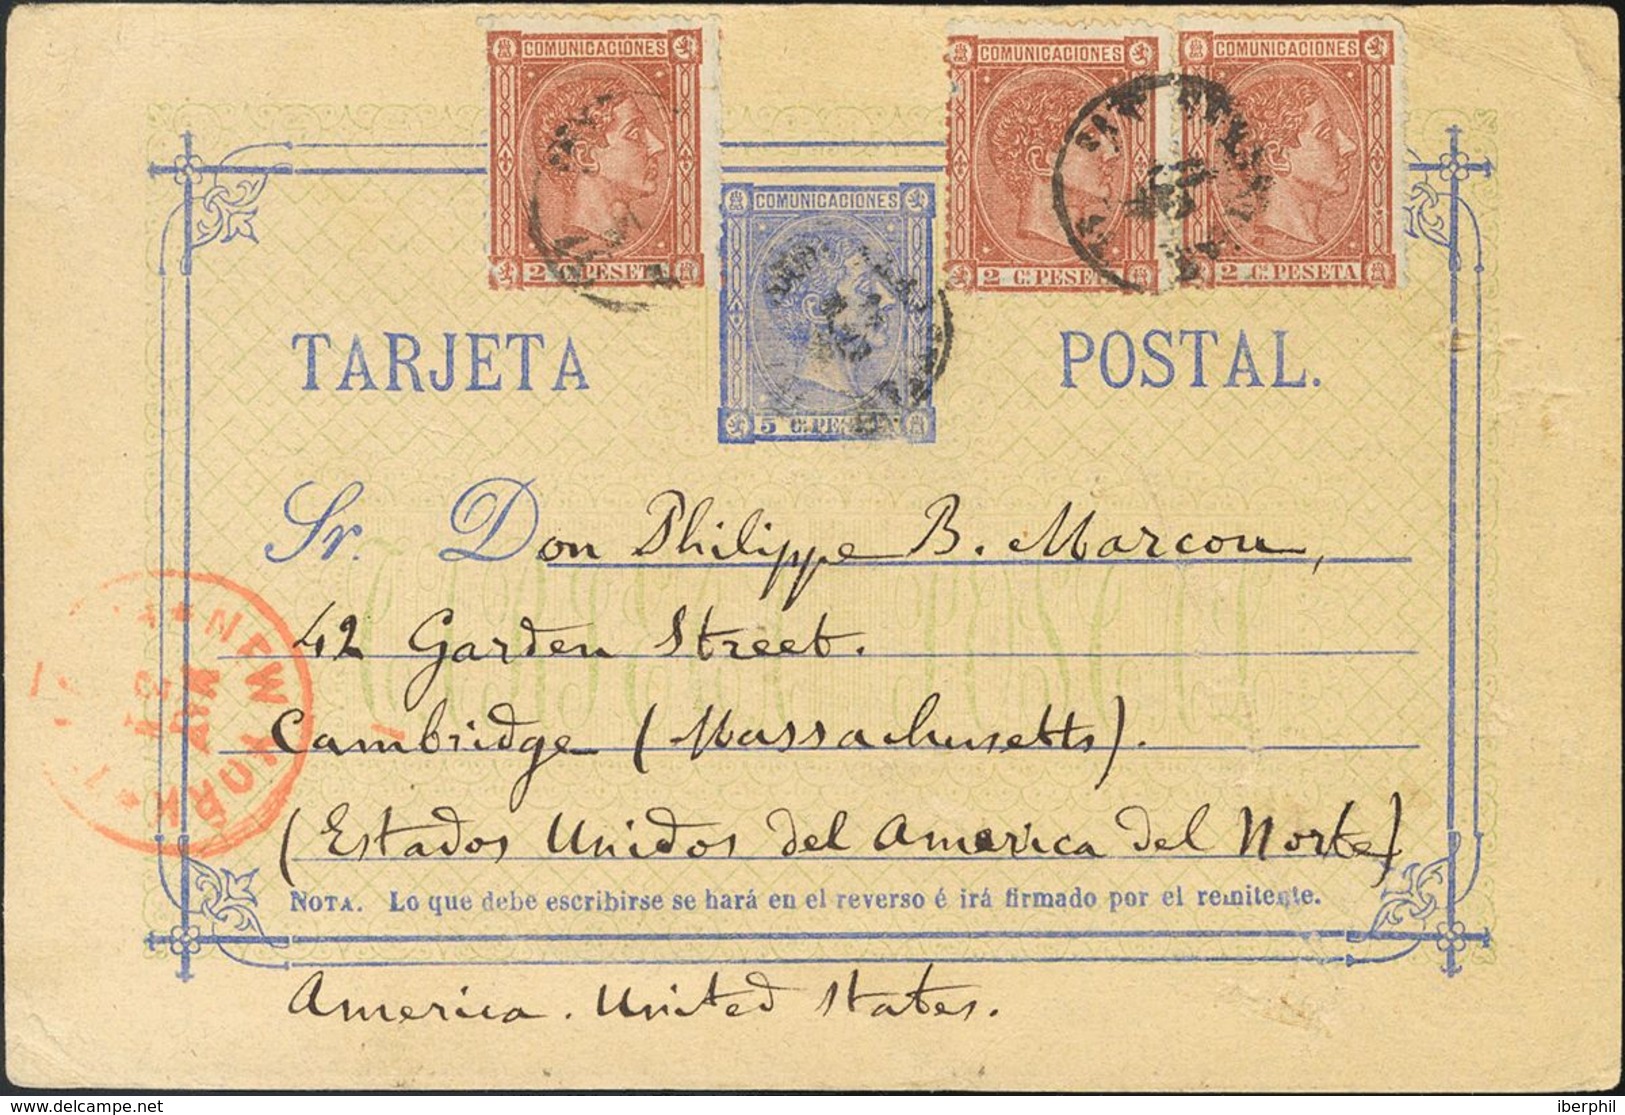 COMUNICACIONES
COMUNICACIONES
COMUNICACIONES
2 C. PESETA
2 C. PESETA
2 C. PESETA
COMUNICACIONES
5 C. PESETA
TARJETA POSTAL.
Sr. Don Philippe B. Marcou,
42 Garden Street.
Cambridge (Massachusetts).
(Estados Unidos del America del Norte)
NOTA. Lo que debe escribirse se hará en el reverso é irá firmado por el remitente.
America. United States.
NEW YORK
delcampe.net
iberphil